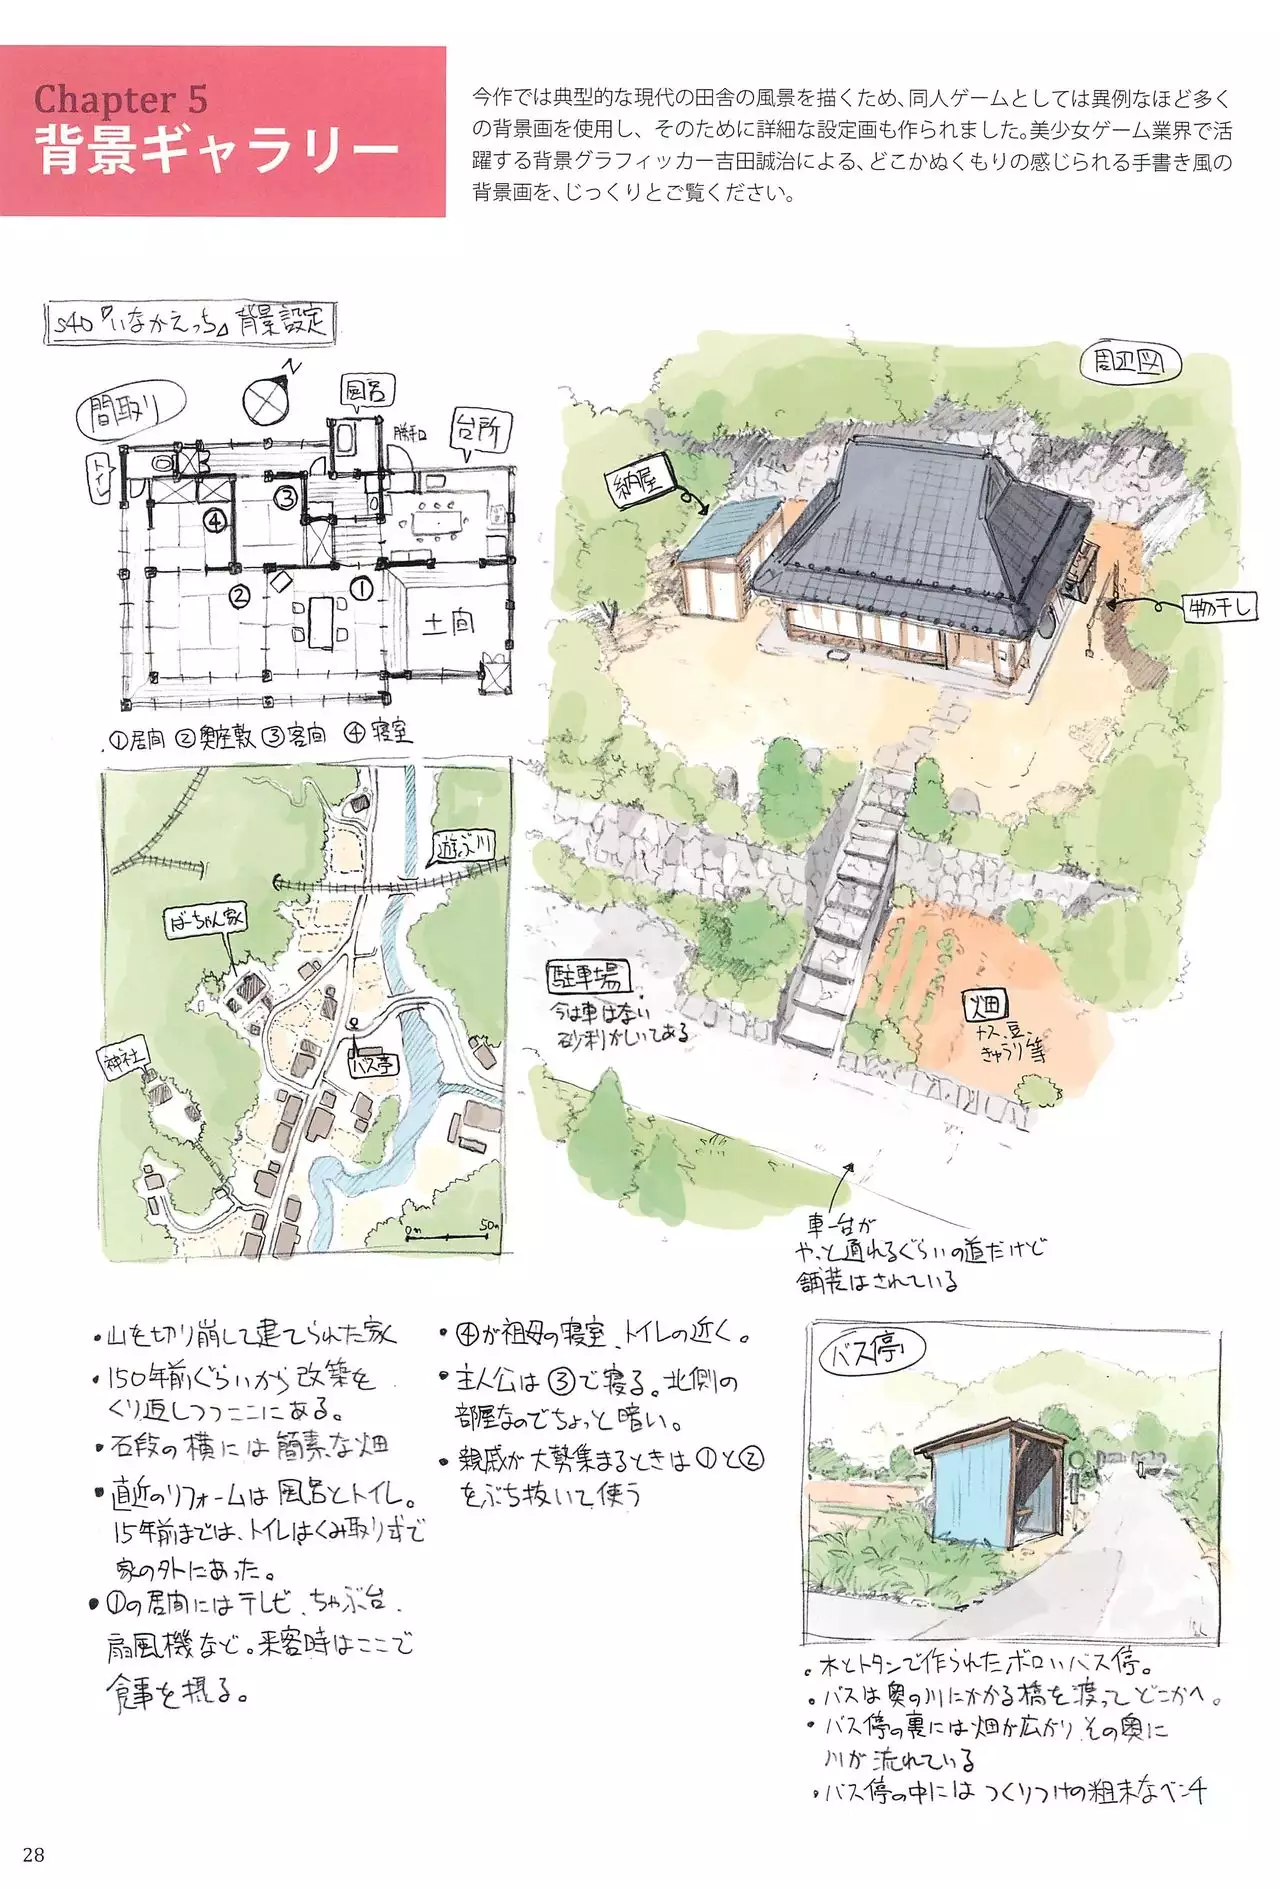 Chapter 5
背景ギャラリー
今作では典型的な現代の田舎の風景を描くため、同人ゲームとしては異例なほど多く
の背景画を使用し、そのために詳細な設定画も作られました。美少女ゲーム業界で活
躍する背景グラフィッカー吉田誠治による、どこかぬくもりの感じられる手書き風の
背景画を、じっくりとご覧ください。
S40『いなかえっち』背景設定
間取り
N
風呂
勝手口
台所
トイレ
③
④
②
①
土間
①居間 ②奥座敷 ③客間 ④寝室
周辺図
納屋
物干し
駐車場
今は車はない
砂利がしいてある
畑
ナス、豆、
きゅうり等
車一台が
やっと通れるぐらいの道だけど
舗装はされている
遊ぶ川
ばーちゃん家
神社
バス亭
0m 50m
・山を切り崩して建てられた家
・150年前ぐらいから改築を
くり返しつつここにある。
・石段の横には簡素な畑
・直近のリフォームは風呂とトイレ。
15年前までは、トイレはくみ取り式で
家の外にあった。
・①の居間にはテレビ、ちゃぶ台、
扇風機など。来客時はここで
食事を摂る。
・④が祖母の寝室、トイレの近く。
・主人公は③で寝る。北側の
部屋なのでちょっと暗い。
・親戚が大勢集まるときは①と②
をぶち抜いて使う
バス停
・木とトタンで作られたボロいバス停。
・バスは奥の川にかかる橋を渡ってどこかへ。
・バス停の裏には畑が広がり その奥に
川が流れている
・バス停の中には つくりつけの粗末なベンチ
28